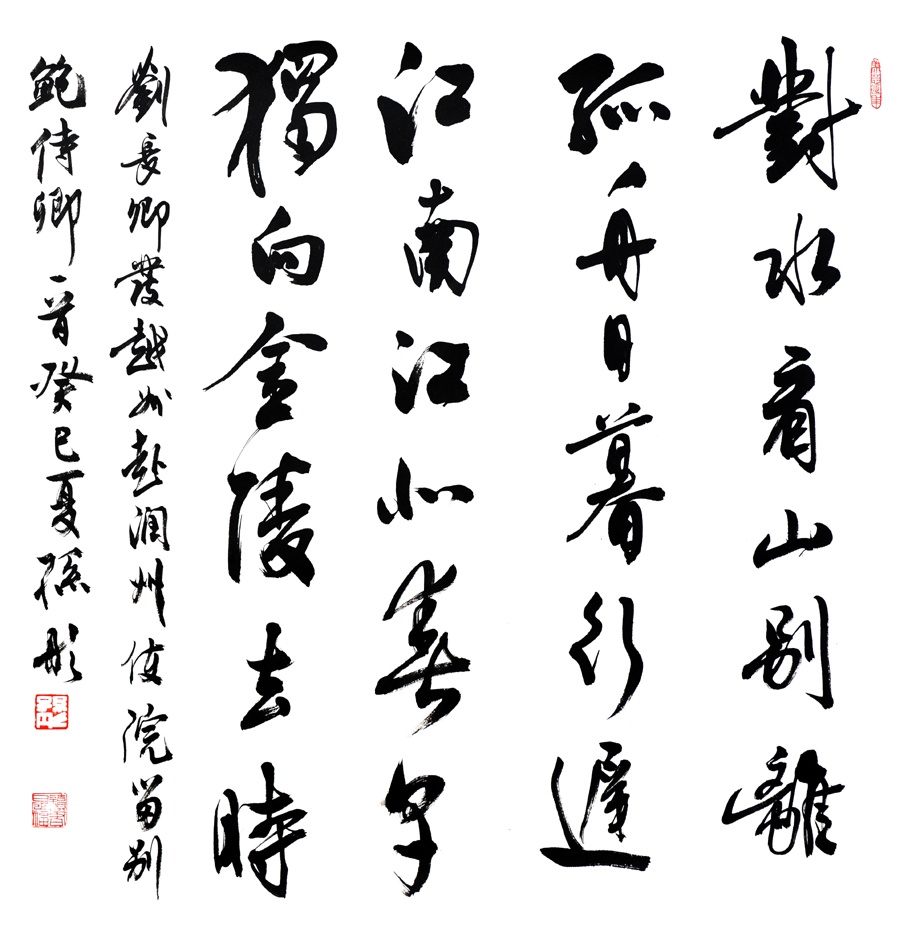 對水看山别離
孤舟日暮行遲
江南江北春草
獨向金陵去時
劉長卿發越州赴潤州使院留别
鮑侍卿一首癸巳夏孫彤